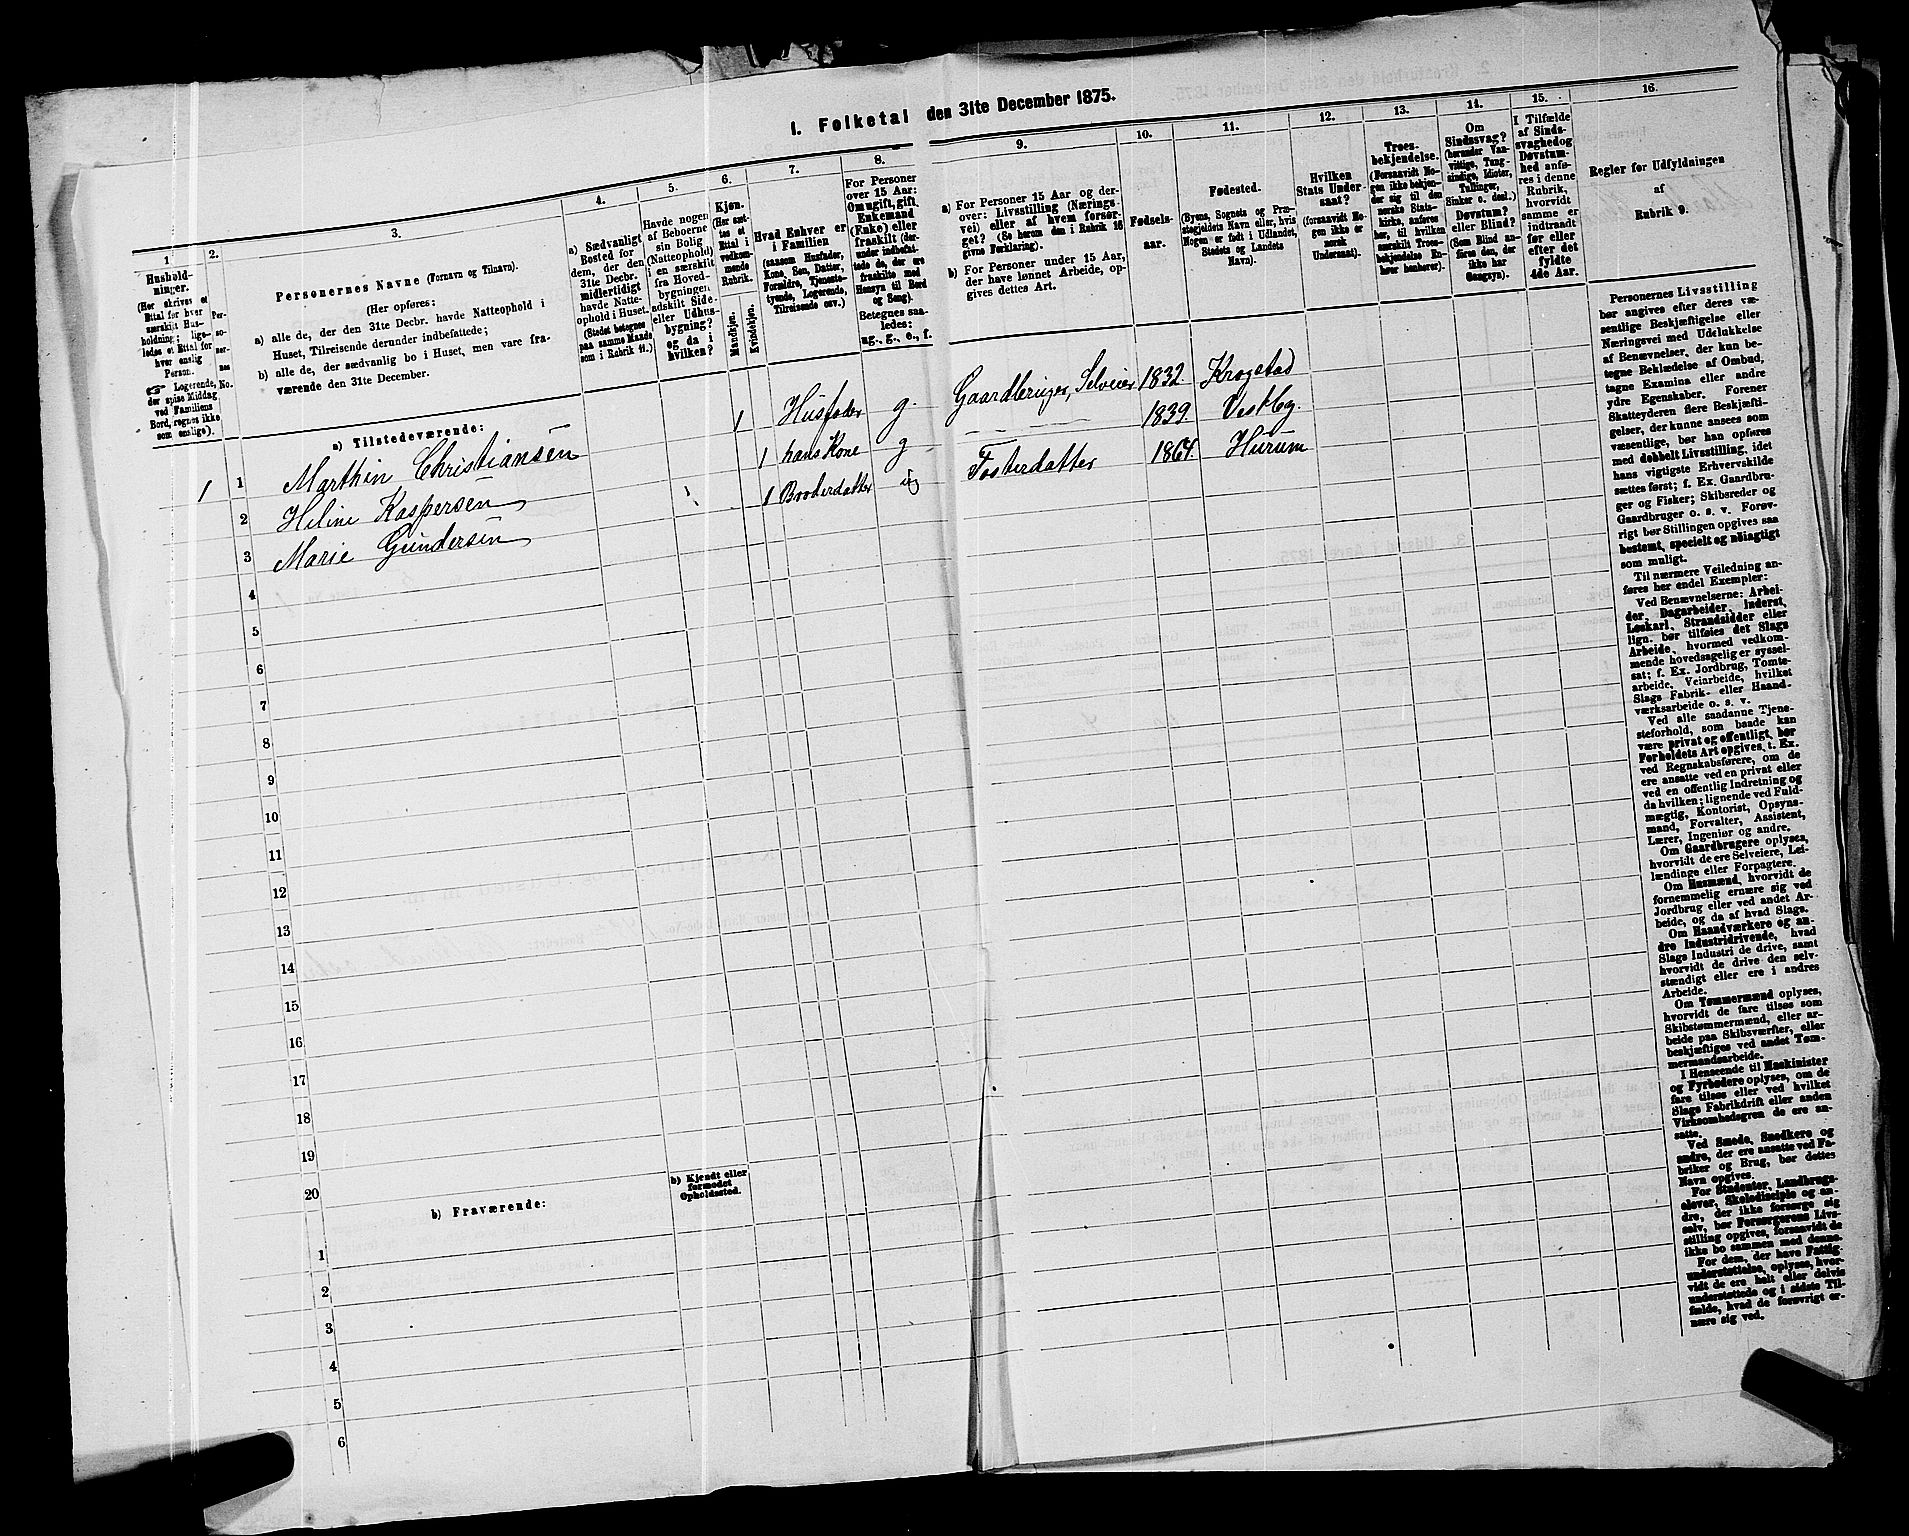 I. Folketal den 31te December 1875.
1.
Husholdninger.
(Her skrives et Ettal for hver særskilt Husholdning; ligeledes et Ettal for hver enslig Person.
☞ Logerende, der spise Middag ved Familiens Bord, regnes ikke som enslige).
2.
Personernes No.
3.
Personernes Navne (Fornavn og Tilnavn).
(Her opføres:
a) alle de, der den 31te Decbr. havde Natteophold i Huset, Tilreisende derunder indbefattede;
b) alle de, der sædvanlig bo i Huset, men vare fraværende den 31te December.
4.
a) Sædvanligt Bosted for dem, der den 31te Decbr. midlertidigt havde Natteophold i Huset.
(Stedet betegnes paa samme Maade som i Rubrik 11.)
5.
Havde nogen af Beboerne sin Bolig (Natteophold) i en særskilt fra Hovedbygningen adskilt Side- eller Udhusbygning? og da i hvilken?
6.
Kjøn.
(Her sættes et Ettal i vedkommende Rubrik.
Mandkjøn.
Kvindekjøn.
7.
Hvad Enhver er i Familien
(saasom Husfader, Kone, Søn, Datter, Forældre, Tjenestetyende, Logerende, Tilreisende osv.)
8.
For Personer over 15 Aar: Om ugift, gift, Enkemand (Enke) eller fraskilt (derunder indbefattede de, der ere fraskilte med Hensyn til Bord og Seng).
Betegnes saaledes:
ug., g., e., f.
9.
a) For Personer 15 Aar og derover: Livsstilling (Næringsvei) eller af hvem forsørget? (Se herom den i Rubrik 16 givne Forklaring).
b) For Personer under 15 Aar, der have lønnet Arbeide, opgives dettes Art.
10.
Fødselsaar.
11.
Fødested.
(Byens, Sognets og Præstegjeldets Navn eller, hvis Nogen er født i Udlandet, Stedets og Landets Navn).
12.
Hvilken Stats Undersaat?
(forsaavidt Nogen ikke er norsk Undersaat).
13.
Troesbekjendelse.
(Forsaavidt Nogen ikke bekjender sig til den norske Statskirke, anføres her, til hvilken særskilt Troesbekjendelse Enhver henhører.)
14.
Om Sindssvag? (herunder Vanvittige, Tungsindige, Idioter, Tullinger, Sinker o. desl.) Døvstum? eller Blind? (Som Blind anføres den, der ikke har Gangsyn).
15.
I Tilfælde af Sindssvaghed og Døvstumhed anføres i denne Rubrik, hvorvidt samme er indtraadt før eller efter det fyldte 4de Aar.
16.
Regler før Udfyldningen
af
Rubrik 9.
a) Tilstedeværende:
1 1 Marthin Christiansen 1 Husfader g. Gaardbruger, Selveier 1832. Krogstad
2 Heline Kaspersen 1 hans Kone g 1839. Vestby.
3 Marie Gundersen 1 Broderdatter ug Fosterdatter 1864. Hurum
4
5
6
7
8
9
10
11
12
13
14
15
16
17
18
19
20
b) Fraværende:
b) Kjendt eller formodet Opholdssted.
1
2
3
4
5
6
Personernes Livsstilling
bør angives efter deres væ-
sentlige Beskjæftigelse eller
Næringsvei med Udelukkelse
af Benævnelser, der kun be-
tegne Beklædelse af Ombud,
tagne Examina eller andre
ydre Egenskaber. Forener
Skatteyderen flere Beskjæfti-
gelser, der kunne ansees som
væsentlige, bør han opføres
med dobbelt Livsstilling, idet
hans vigtigste Erhvervskilde
sættes først; f. Ex. Gaardbru-
ger og Fisker; Skibsreder og
Gaardbruger o. s. v. Forøv-
rigt bør Stillingen opgives saa
bestemt, specielt og nøiagtigt
som muligt.
Til nærmere Veiledning an-
føres her endel Exempler:
Ved Benævnelserne: Arbei-
der, Dagarbeider, Inderst,
Løskarl, Strandsidder eller
lign. bør tilføies det Slags
Arbeide, hvormed vedkom-
mende hovedsagelig er syssel-
sat; f. Ex. Jordbrug, Tomte-
arbeide, Veiarbeide, hvilket
Slags Fabrik- eller Haand-
værksarbeide o. s. v.
Ved alle saadanne Tjene-
steforhold, som baade kan
være privat og offentligt, bør
Forholdets Art opgives, t. Ex.
ved Regnskabsførere, om de
ere ansatte ved en privat eller
ved en offentlig Indretning og
da hvilken; lignende ved Fuld-
mægtig, Kontorist, Opsyns-
mand, Forvalter, Assistent,
Lærer, Ingeniør og andre.
Om Gaardbrugere oplyses,
hvorvidt de ere Selveiere, Lei-
lændinge eller Forpagtere.
Om Husmænd, hvorvidt de
fornemmelig ernære sig ved
Jordbrug eller ved andet Ar-
beide, og da af hvad Slags.
Om Haandværkere og an-
dre Industridrivende, hvad
Slags Industri de drive, samt
hvorvidt de drive den selv-
stændigt eller ere i andres
Arbeide.
Om Tømmermænd oplyses,
hvorvidt de fare tilsøs som
Skibstømmermænd, eller ar-
beide paa Skibsværfter, eller
beskjæftiges ved andet Tøm-
mermandsarbeide.
I Henseende til Maskinister
og Fyrbødere oplyses, om de
fare tilsøs eller ved hvilket
Slags Fabrikdrift eller anden
Virksomhedsgren de ere an-
satte.
Ved Smede, Snedkere og
andre, der ere ansatte ved Fa-
briker og Brug, bør dettes
Navn opgives.
For Studenter, Landbrugs-
elever, Skoledisciple og an-
dre, der ikke forsørge sig
selv, bør Forsørgerens Livs-
stilling opgives, forsaavidt de
ikke bo sammen med denne.
For dem, der have Fattig-
understøttelse, oplyses, hvor-
vidt de ere helt eller delvis
understøttede og i sidste Til-
fælde, hvad de forøvrigt er-
nære sig ved.